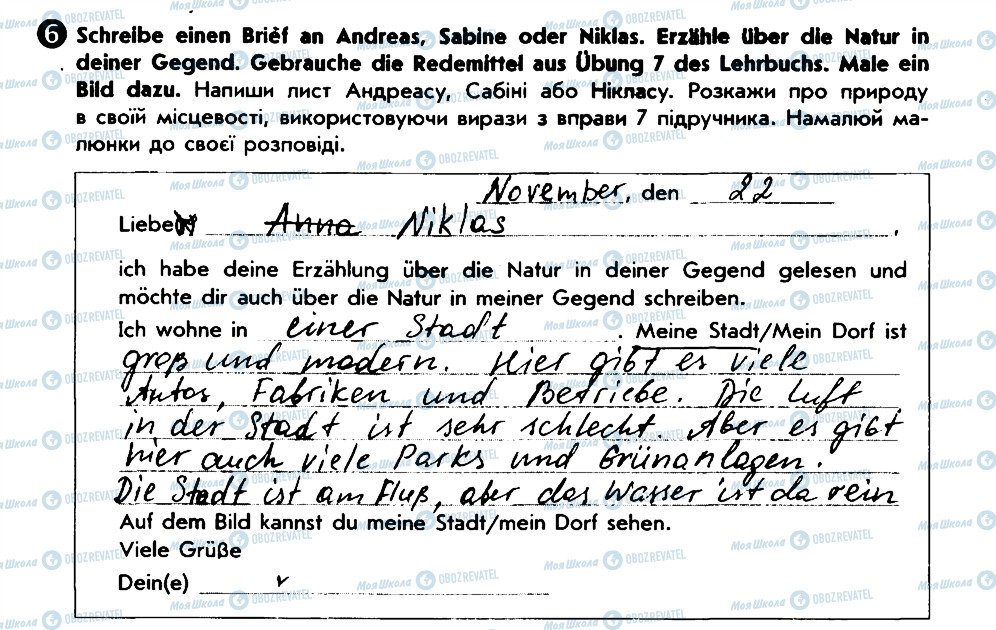 6 Schreibe einen Brief an Andreas, Sabine oder Niklas. Erzähle über die Natur in
deiner Gegend. Gebrauche die Redemittel aus Übung 7 des Lehrbuchs. Male ein
Bild dazu. Напиши лист Андреасу, Сабіні або Нікласу. Розкажи про природу
в своїй місцевості, використовуючи вирази з вправи 7 підручника. Намалюй ма-
люнки до своєї розповіді.
November, den 22
Liebe(r) Anna Niklas,
ich habe deine Erzählung über die Natur in deiner Gegend gelesen und
möchte dir auch über die Natur in meiner Gegend schreiben.
Ich wohne in einer Stadt. Meine Stadt/Mein Dorf ist
groß und modern. Hier gibt es viele
Autos, Fabriken und Betriebe. Die Luft
in der Stadt ist sehr schlecht. Aber es gibt
hier auch viele Parks und Grünanlagen.
Die Stadt ist am Fluß, aber das Wasser ist da rein
Auf dem Bild kannst du meine Stadt/mein Dorf sehen.
Viele Grüße
Dein(e) v
Моя Школа OBOZREVATEL